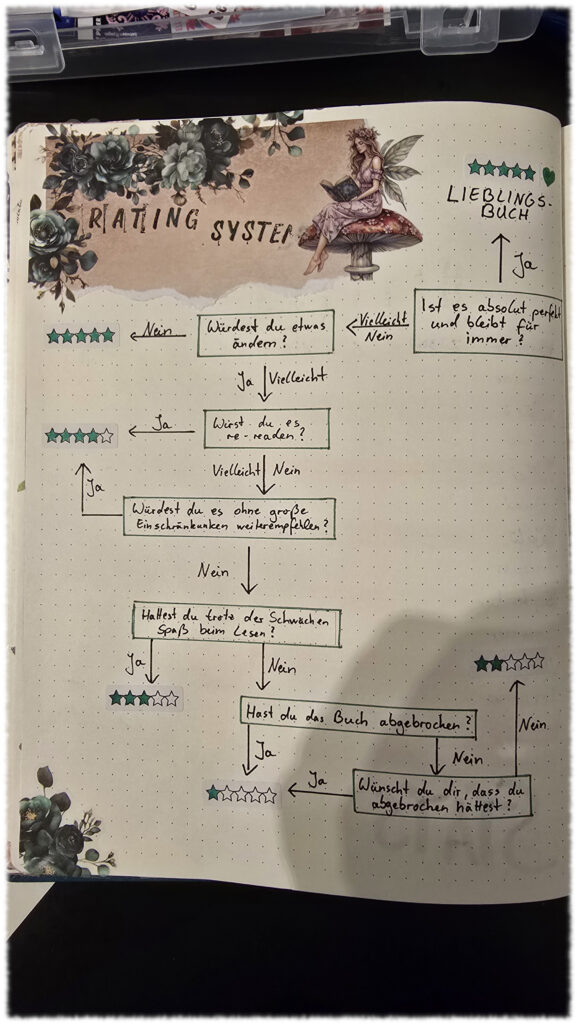 RATING SYSTEM
LIEBLINGS-
BUCH
Ja
Ist es absolut perfekt
und bleibt für
immer?
Vielleicht
Nein
Würdest du etwas
ändern?
Nein
Ja Vielleicht
Würst du es
re-readen?
Ja
Vielleicht Nein
Würdest du es ohne große
Einschränkunken weiterempfehlen?
Ja
Nein
Hattest du trotz des Schwächen
Spaß beim Lesen?
Ja
Nein
Hast du das Buch abgebrochen?
Ja
Nein
Wünscht du dir, dass du
abgebrochen hättest?
Ja
Nein